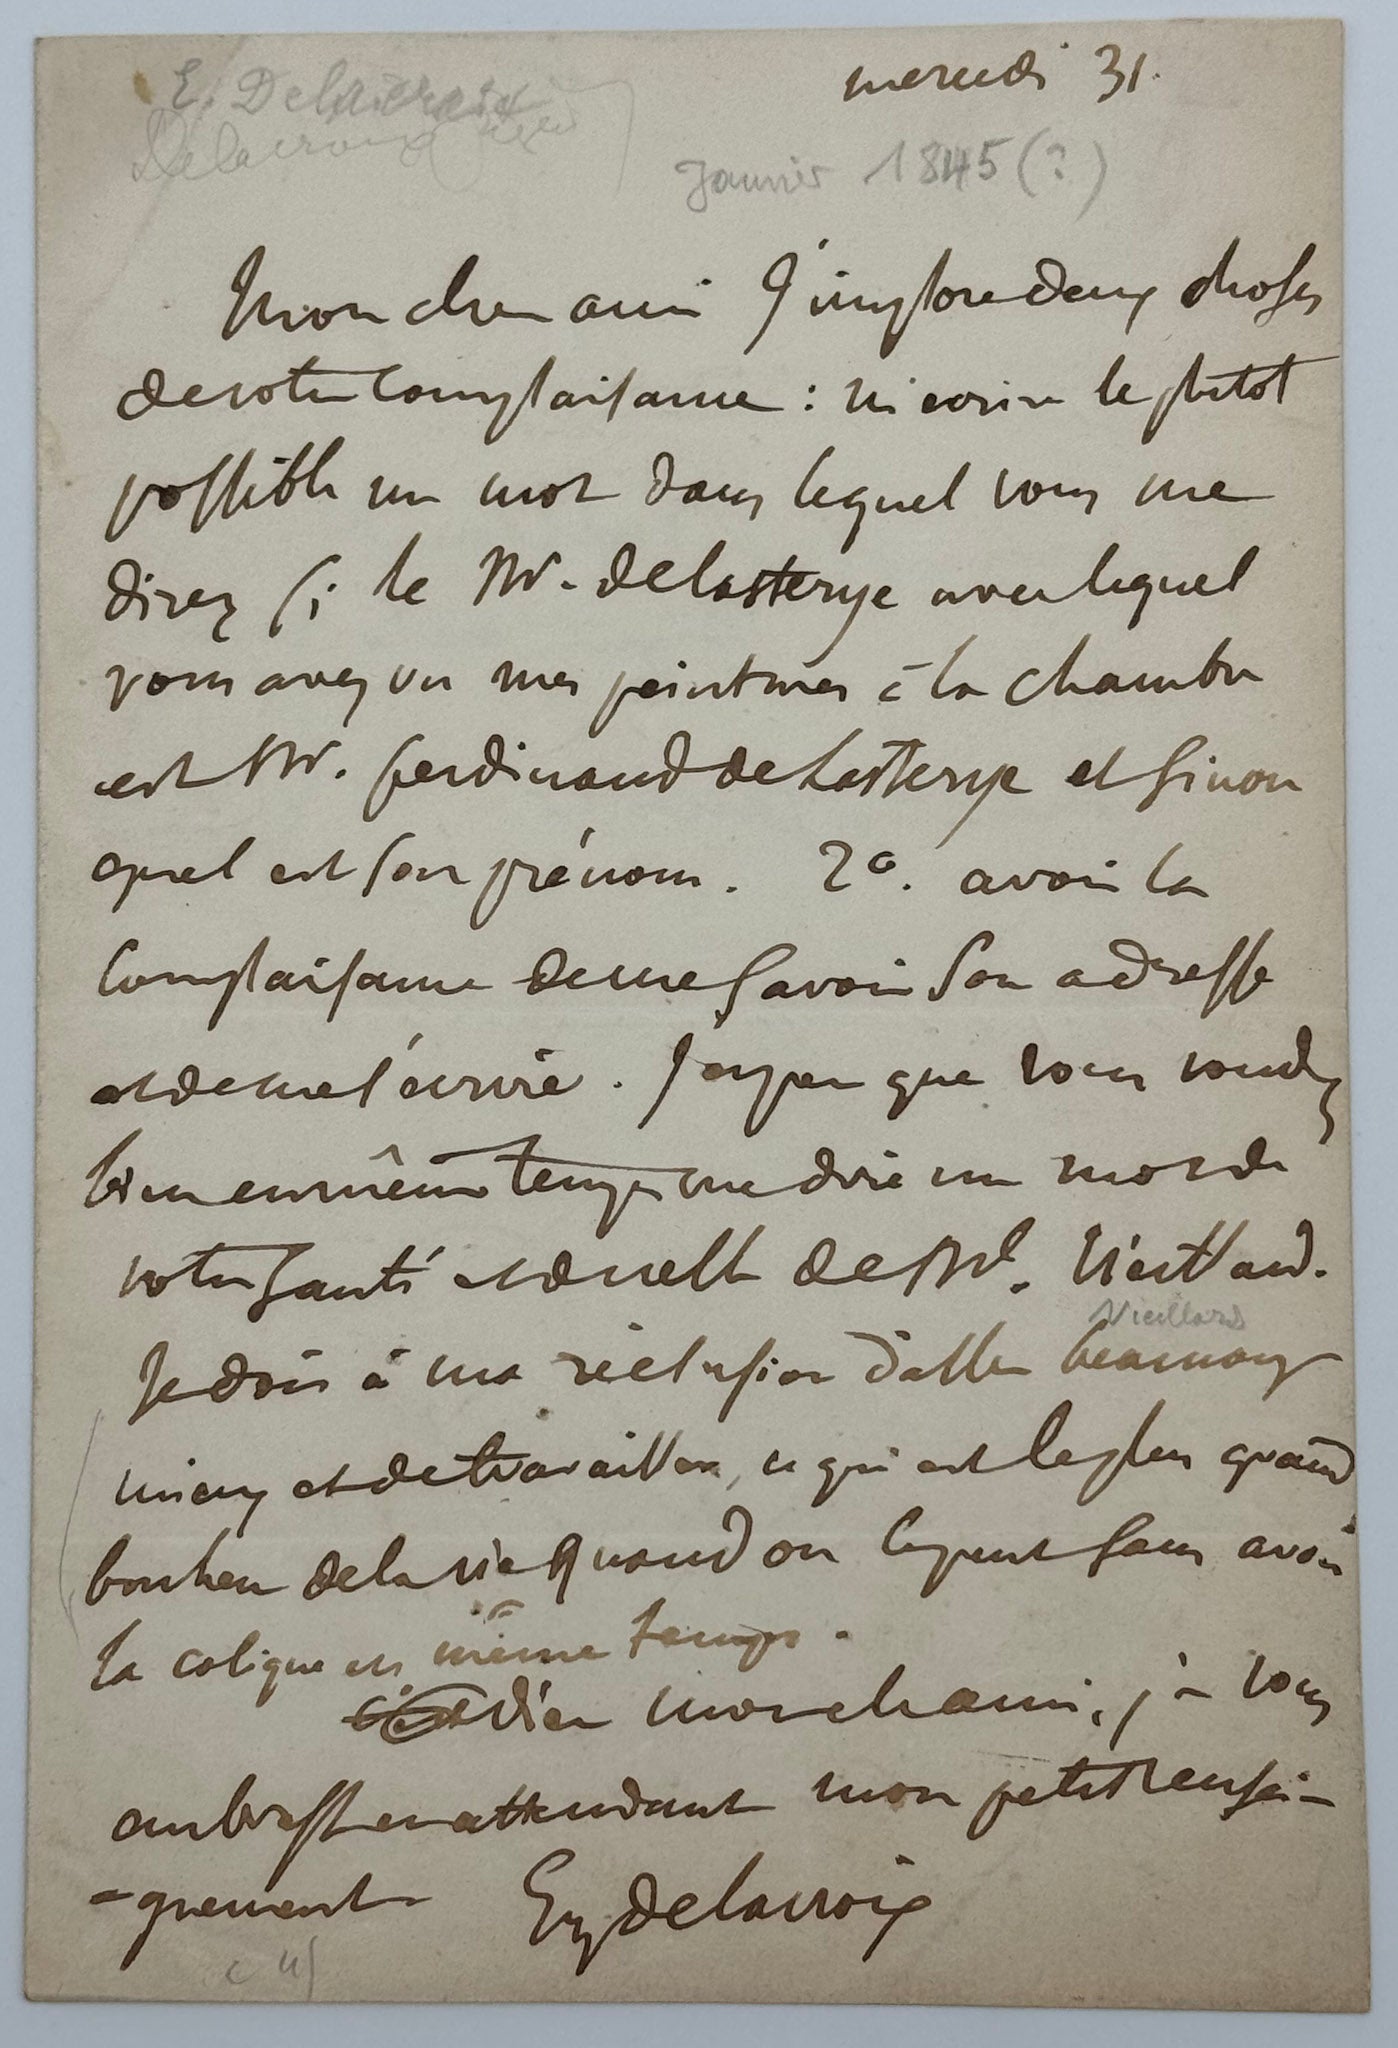 mercredi 31.
E. Delacroix
Delacroix
Janvier 1845 (?)
Mon cher ami J'implore deux choses
de votre complaisance : m'ecrire le plutot
possible un mot dans lequel vous me
direz si le Mr. de Lasterye avec lequel
vous avez vu mes peintures à la chambre
est Mr. ferdinand de Lasterye et sinon
quel est son prénom. 2o. avoir la
complaisance de me savoir son adresse
et de me l'écrire. J'espere que vous voudrez
bien en même temps me dire un mot de
votre santé et de celle de Md. Vieillard.
Vieillard
Je dois à ma réclusion d'aller beaucoup
mieux et de travailler, ce qui est le plus grand
bonheur de la vie quand on le peut sans avoir
la colique en même temps.
adieu mon cher ami, je vous
embrasse en attendant mon petit rensei-
-gnement Eug Delacroix